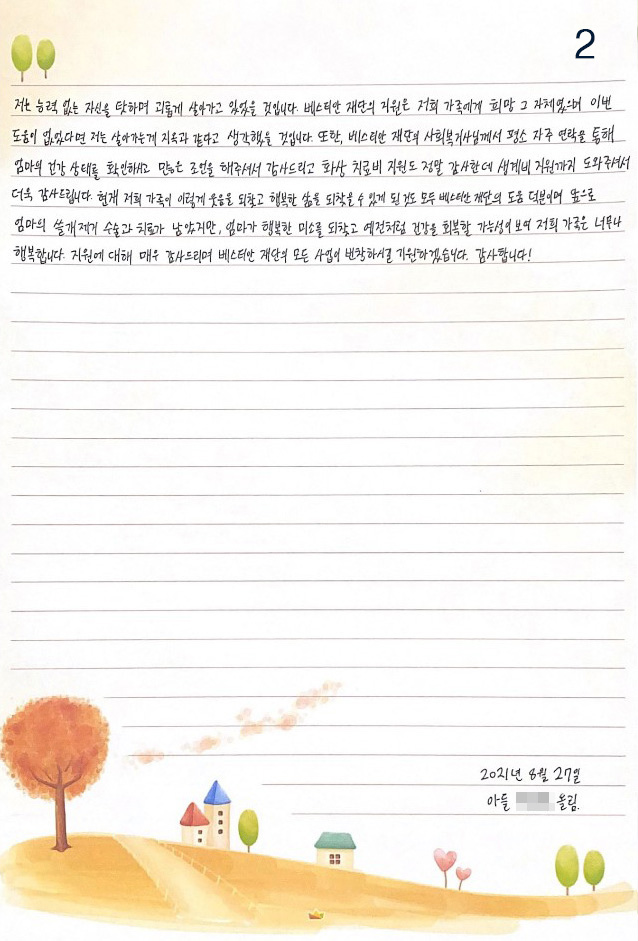 2
저는 능력 없는 자신을 탓하며 괴롭게 살아가고 있었을 것입니다. 베스티안 재단의 지원은 저희 가족에게 희망 그 자체였으며 이번
도움이 없었다면 저는 살아가는게 지옥과 같다고 생각했을 것입니다. 또한, 베스티안 재단의 사회복지사님께서 평소 자주 연락을 통해
엄마의 건강 상태를 확인하시고 많은 조언을 해주셔서 감사드리고 화상 치료비 지원도 정말 감사한데 생계비 지원까지 도와주셔서
더욱 감사드립니다. 현재 저희 가족이 이렇게 웃음을 되찾고 행복한 삶을 되찾을 수 있게 된 것도 모두 베스티안 재단의 도움 덕분이며 앞으로
엄마의 쓸개제거 수술과 치료가 남았지만, 엄마가 행복한 미소를 되찾고 예전처럼 건강을 회복할 가능성이 보여 저희 가족은 너무나
행복합니다. 지원에 대해 매우 감사드리며 베스티안 재단의 모든 사업이 번창하시길 기원하겠습니다. 감사합니다!
2021년 8월 27일
아들 올림.